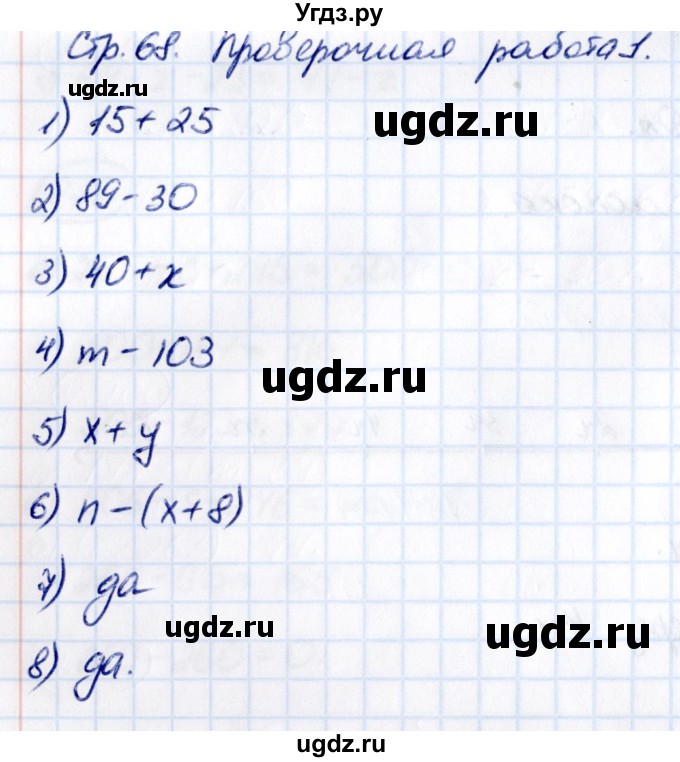 Угдз.ру
Стр. 68. Проверочная работа 1.
ugdz.ru
1) 15 + 25
ugdz.ru
2) 89 - 30
3) 40 + x
4) m - 103
ugdz.ru
5) x + y
6) n - (x + 8)
7) да
ugdz.ru
ugdz.ru
8) да.
ugdz.ru